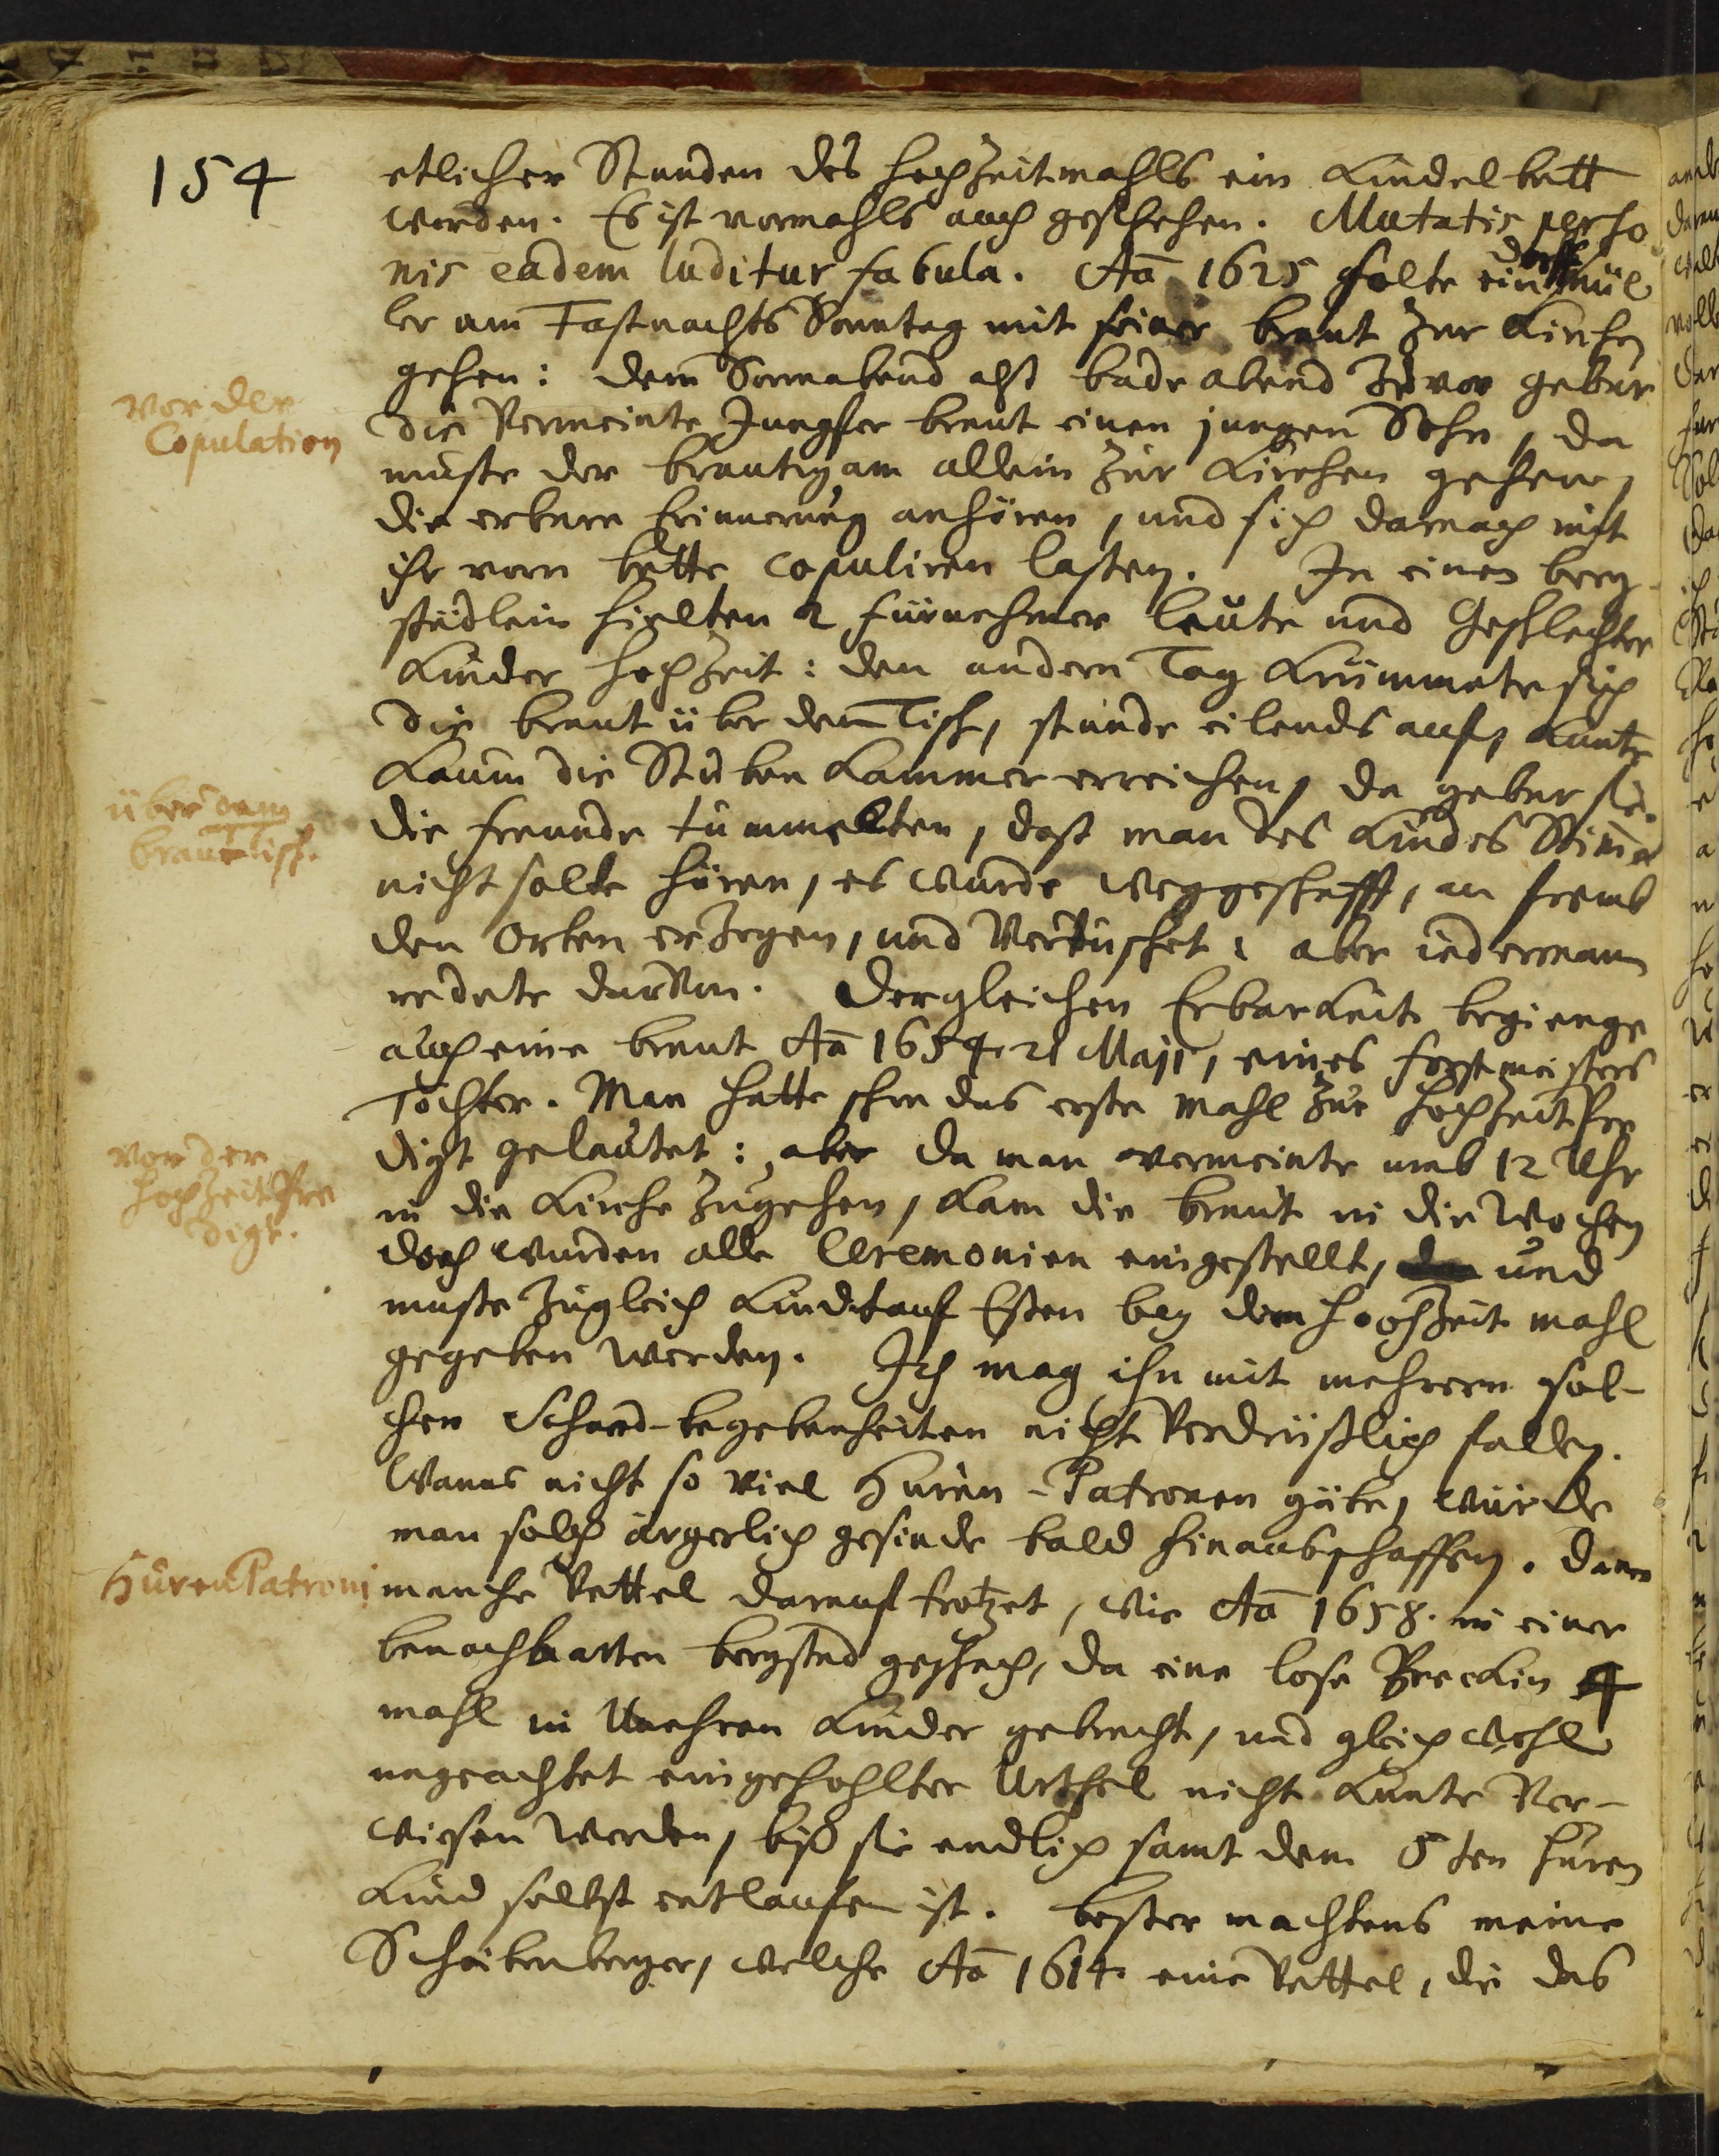 154
etlicher Stunden des Hochzeitmahls ein Kindelbett
worden. Es ist vormahls auch geschehen. Mutatis perso
nis eadem luditur fabula. Aō 1625 solte ein dorff Mül
ler am Fastnachts Sonntag mit seiner braut zur Kirchen
gehen: dem Sonnabend alß badeabend zuvor gebar
vor der
Copulation
die Vermeinte Jungfer braut einen jungen Sohn, da
muste der bräutigam allein zur Kirchen gehen,
die erbare Erinnerung anhören, und sich darnach mit
ihr vorn bette copuliren lassen. In einem berg
städlein hielten 2 fürnehmer leute und Geschlechter
Kinder Hochzeit: den andern Tag krümmete sich
die braut über dem Tisch, stunde eilends auf, kunte
kaum die Stuben Kammer erreichen, da gebar sie.
über dem
brauttisch.
die freunde tummelten, dast man des Kindes Stimm
nicht solte hören, es wurde weggeschafft, an fremb
den Orten erzogen, und Vertuschet: aber iederman
redete darvon. Dergleichen Erbarkeit begienge
auch eine braut Aō 1654. 21 Maji, eines forstmeisters
Tochter. Man hatte schon das erste mahl zur Hochzeit Pre
digt gelautet: aber da man vermeinte umb 12 Uhr
vor der
Hochzeit Pre
digt.
in die Kirche zugehen, kam die braut in die Wochen
doch wurden alle Ceremonien eingestellt, und
muste zugleich Kindtauf Essen bey dem Hochzeit mahl
gegeben werden. Ich mag ihn mit mehrern sol-
chen Schand-begebenheiten nicht Verdrüßlich fallen.
Wanns nicht so viel Huren-Patronen gäbe, würde
man solch ärgerlich gesinde bald hinausschaffen. Dann
Huren Patroni
manche Vettel darauf trotzet, wie Aō 1658. in einer
benachbarten bergstad geschach, da eine lose Breckin 4
mahl in Unehren Kinder gebracht, und gleichwohl
ungeachtet eingehohlter Urthel nicht kunte Ver-
wiesen werden, biß sie endlich samt dem 5ten Huren
Kind selbst entlaufen ist. besser machtens meine
Scheibenberger, welche Aō 1614. eine Vettel, die das